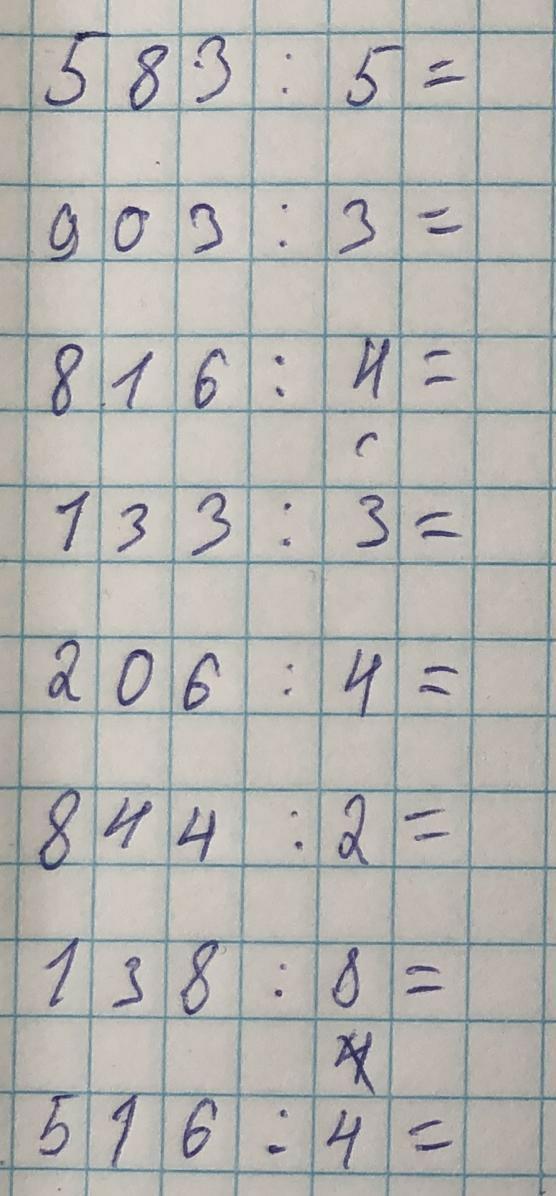 583 : 5 =
903 : 3 =
816 : 4 =
133 : 3 =
206 : 4 =
844 : 2 =
138 : 8 =
516 : 4 =